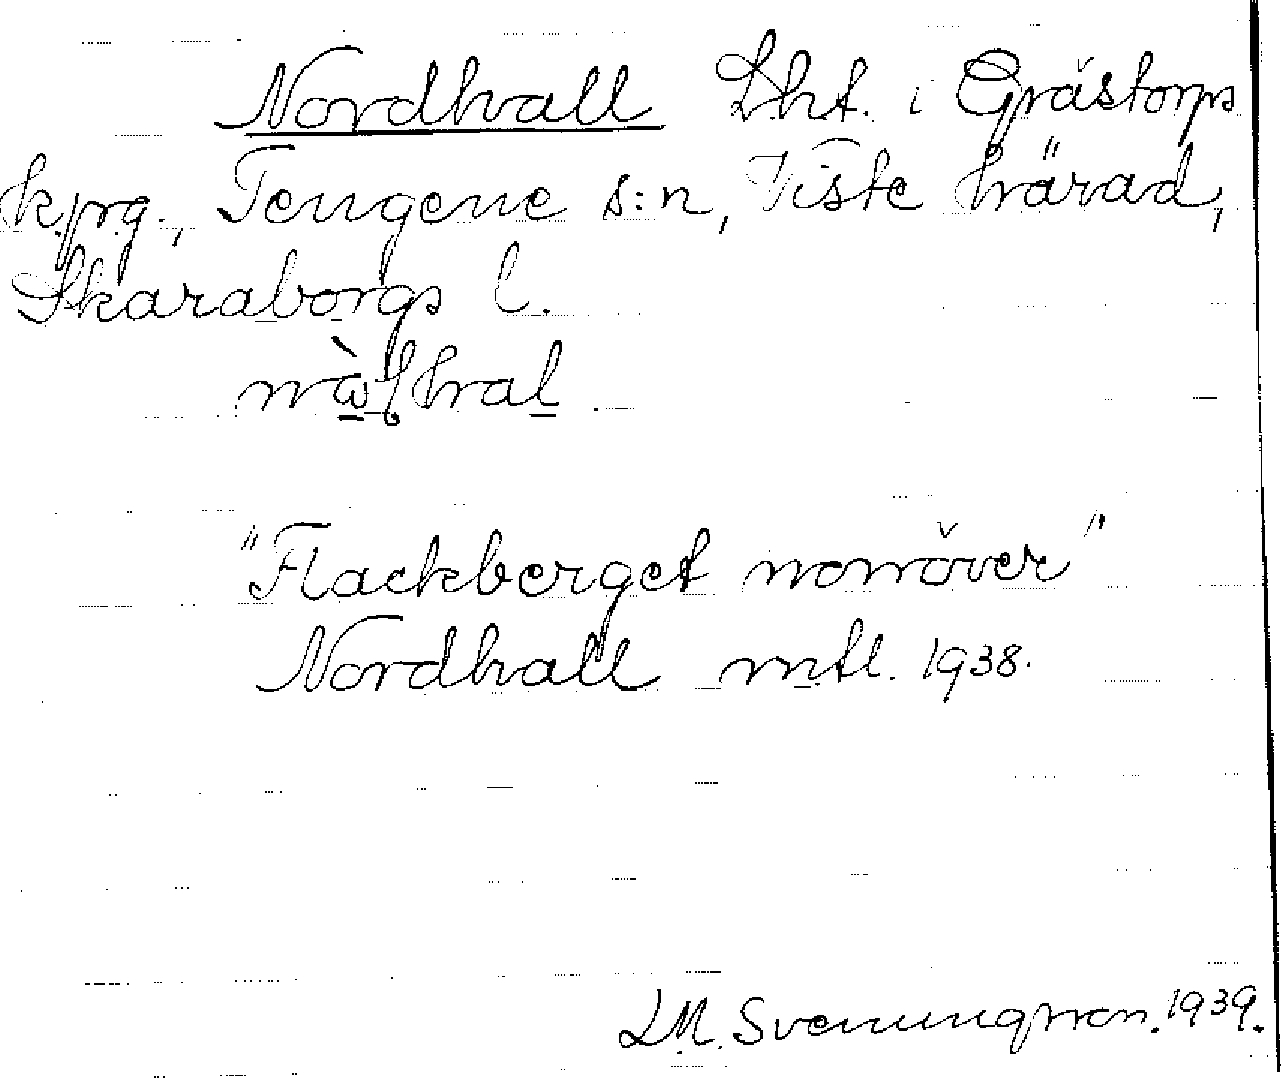 Nordhall Lht. i Grästorps
kpg., Tengene s:n, Viste härad,
Skaraborgs l.
"Flackberget norröver"
Nordhall mtl. 1938.
L.M. Svenungsson. 1939.